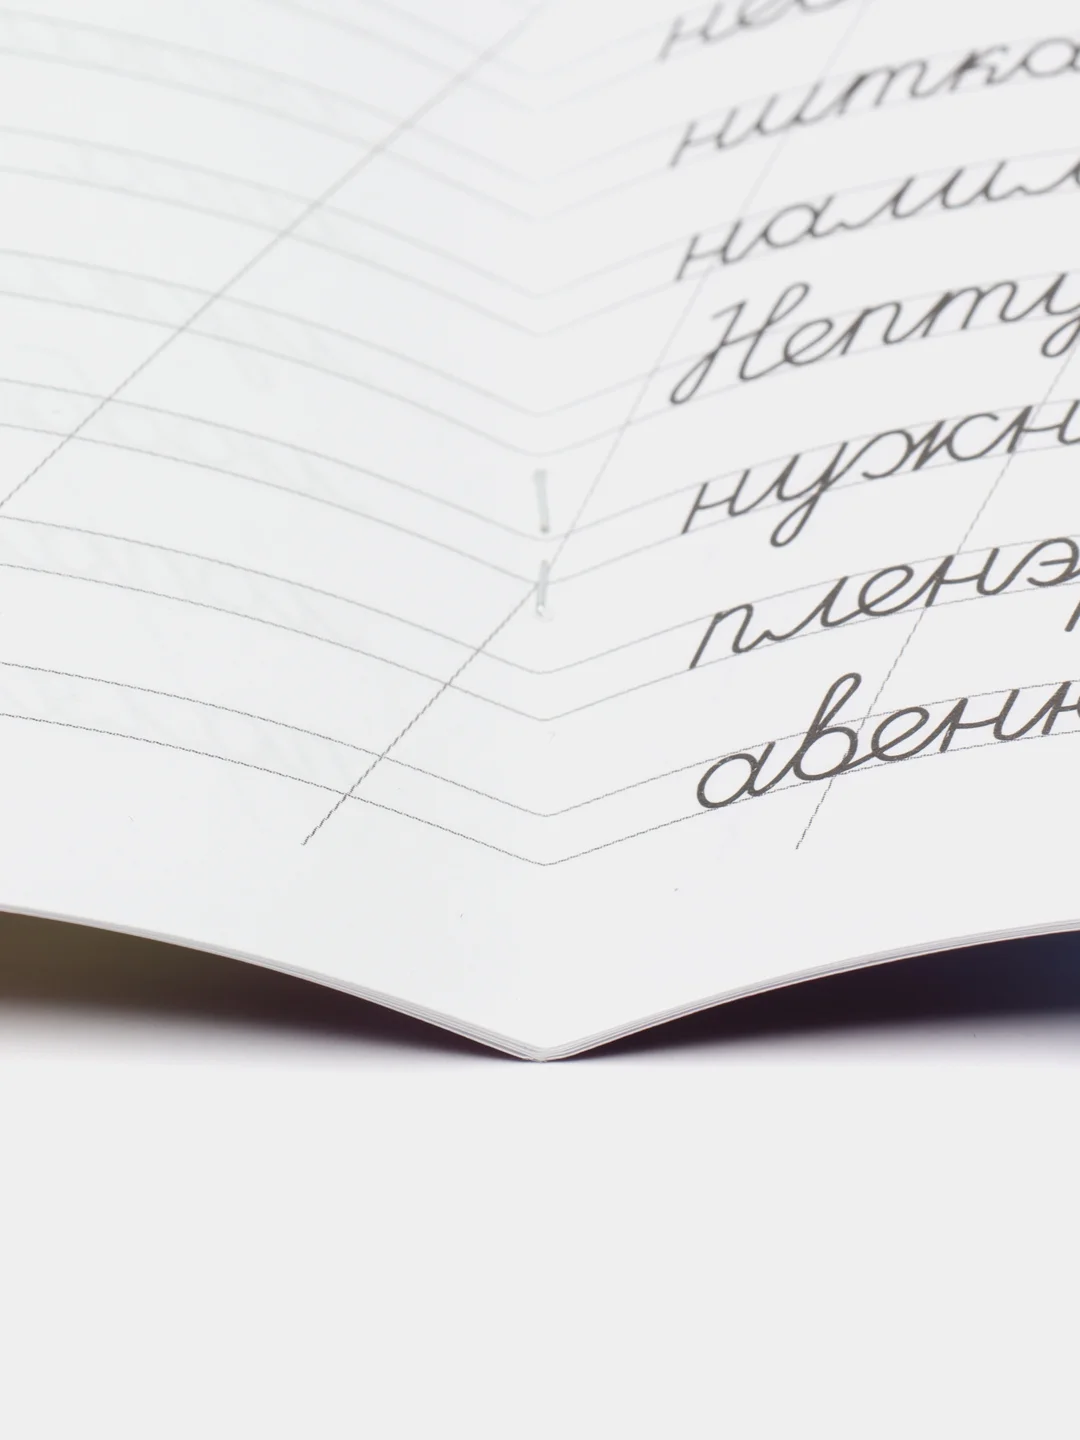 нитка
нали
Непту
нужн
пленэ
авен